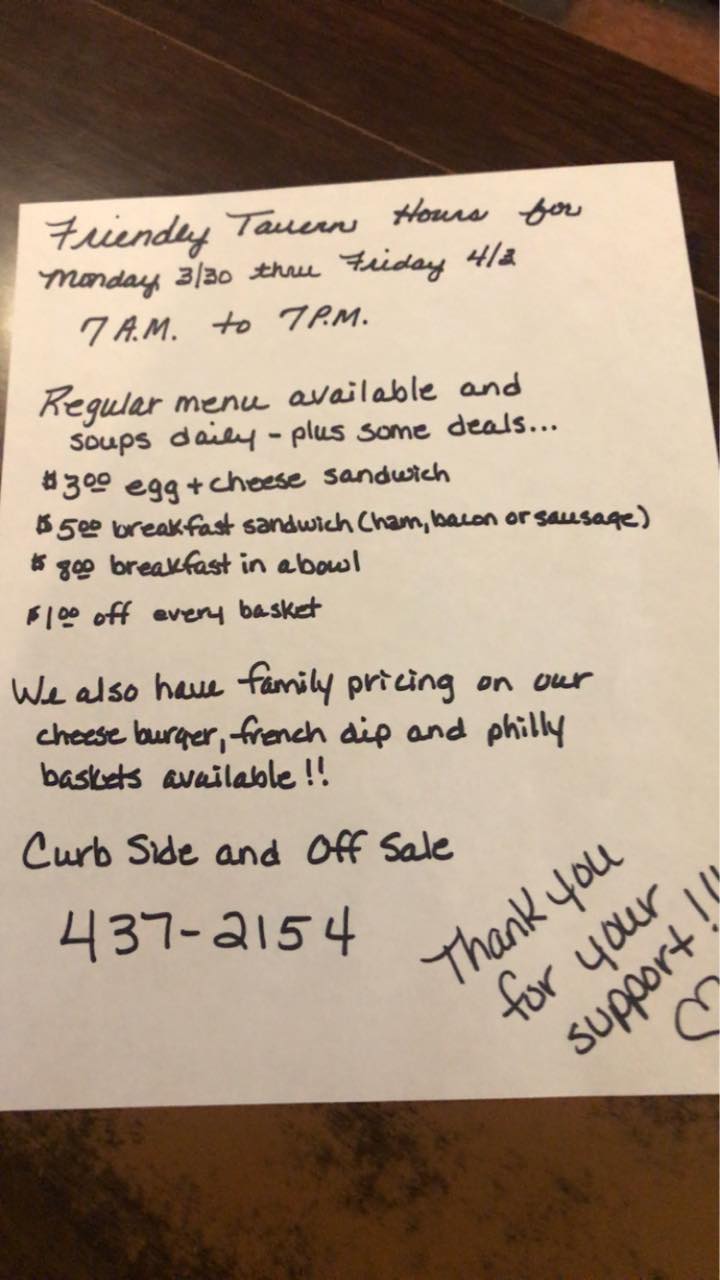 Friendly Tavern Hours for
Monday 3/30 thru Friday 4/3
7 A.M. to 7 P.M.
Regular menu available and
soups daily - plus some deals...
$3.00 egg + cheese sandwich
$5.00 breakfast sandwich (ham, bacon or sausage)
$8.00 breakfast in a bowl
$1.00 off every basket
We also have family pricing on our
cheese burger, french dip and philly
baskets available!!
Curb Side and Off Sale
437-2154
Thank you
for your
support!!!